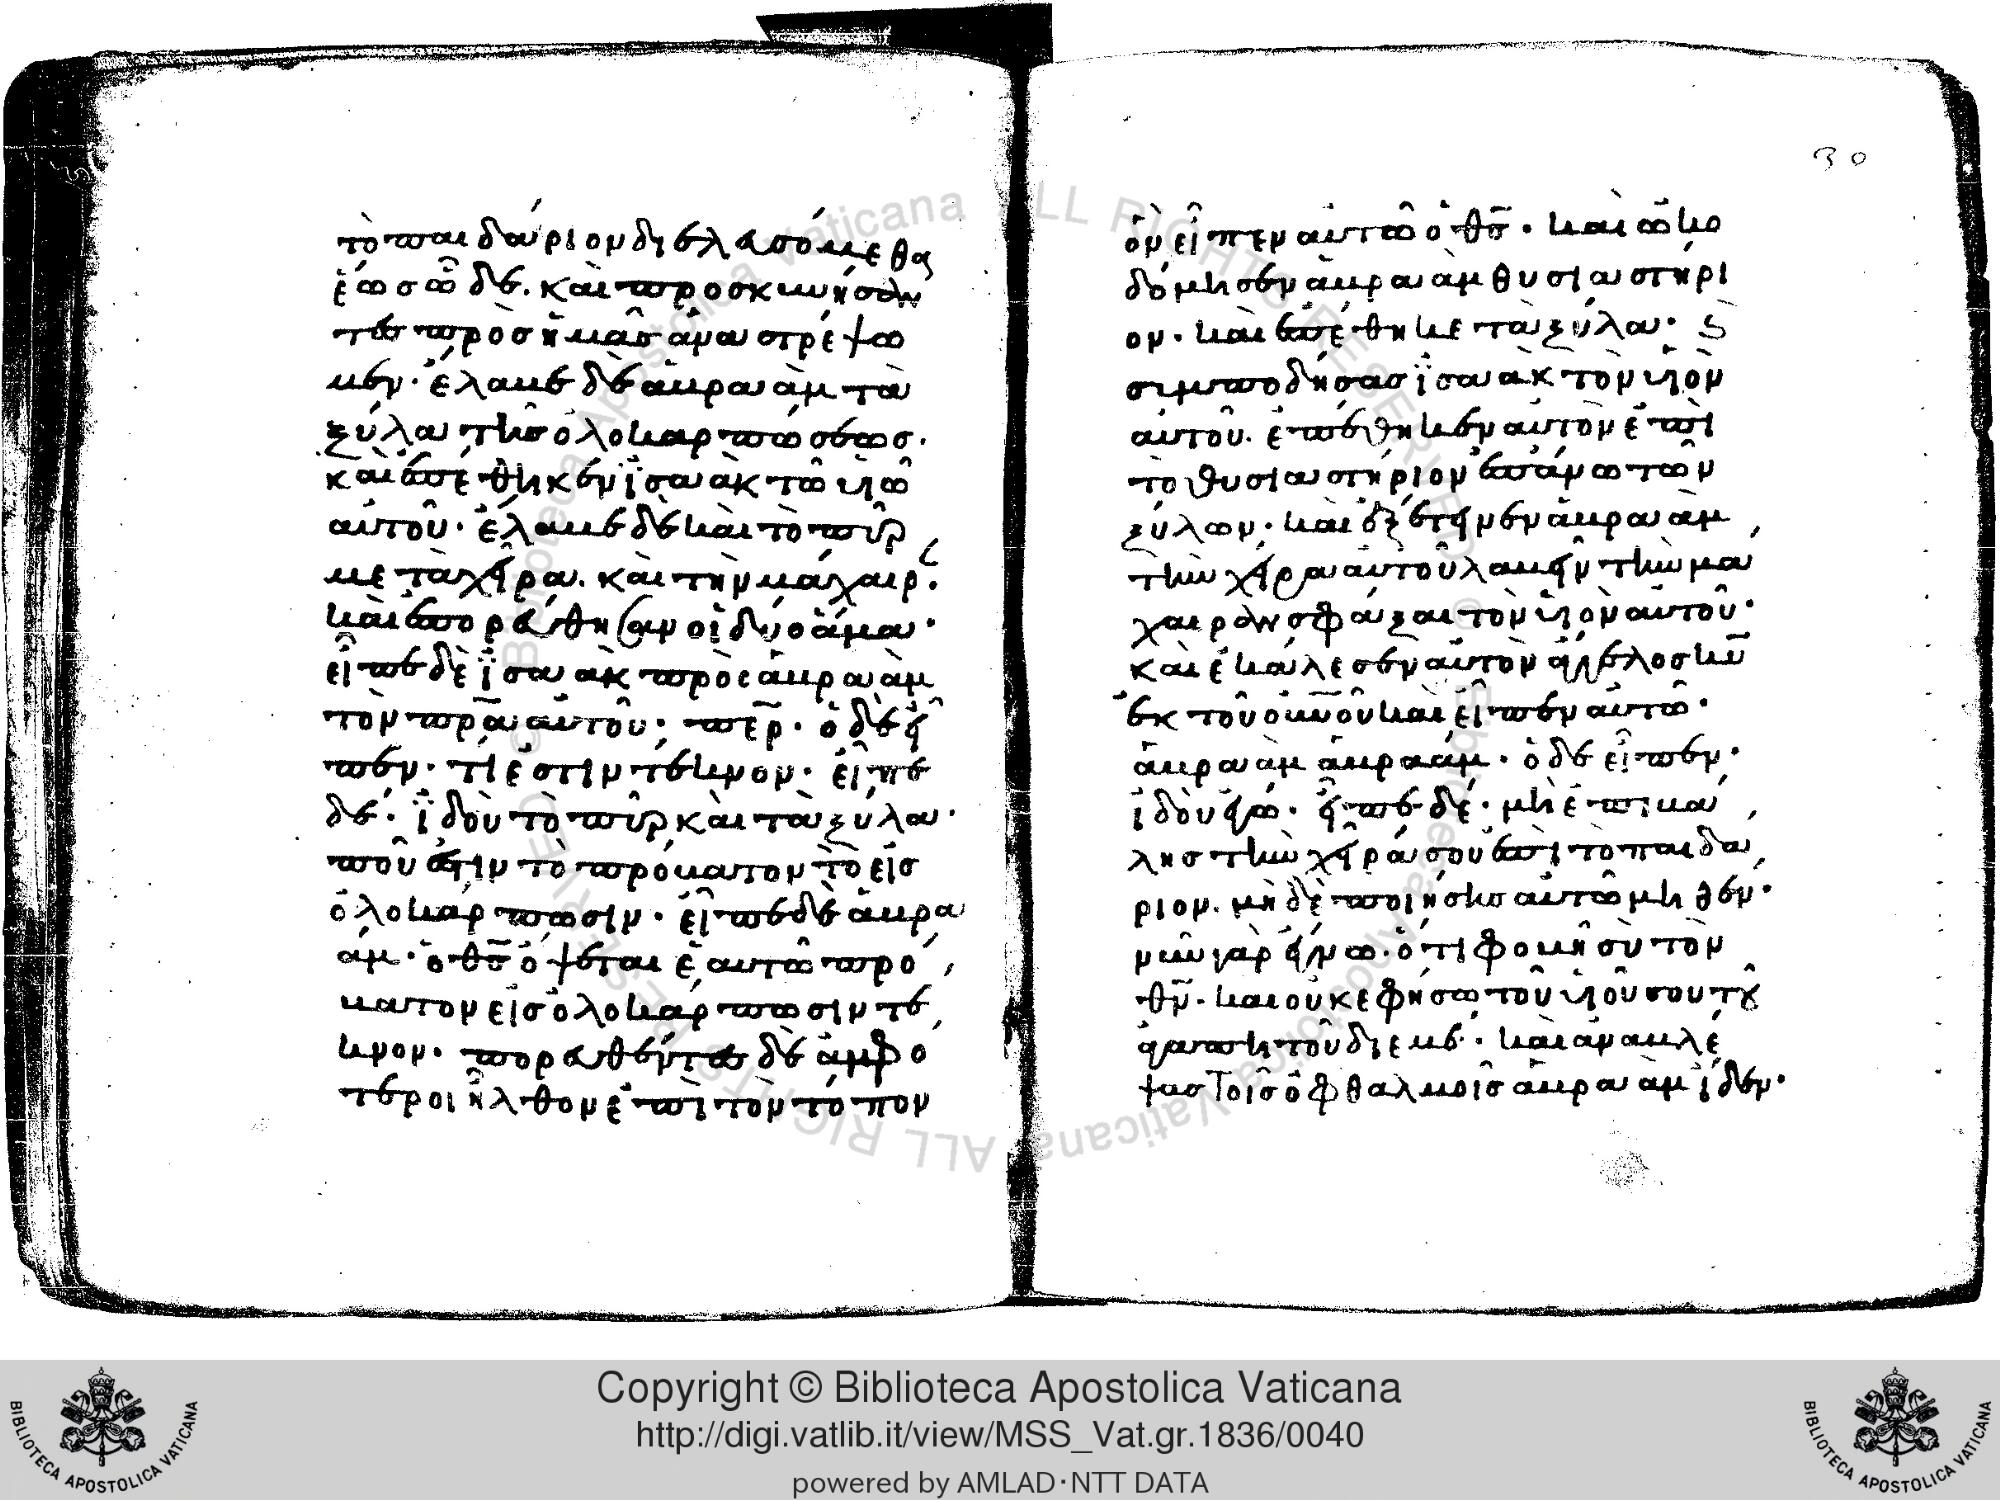 τὸ παιδάριον διελευσόμεθα
ἕως ὧδε. καὶ προσκυνήσαν
τες πρὸς ἡμᾶς ἀναστρέψω
μεν· ἔλαβε δὲ ἀβραὰμ τὰ
ξύλα τῆς ὁλοκαρπώσεως.
καὶ ἐπέθηκεν ἰσαὰκ τῶ υἱῶ
αὐτοῦ· ἔλαβε δὲ καὶ τὸ πῦρ
μετὰ χεῖρα. καὶ τὴν μάχαιρ.
καὶ ἐπορεύθησαν οἱ δύο ἅμα·
εἶπε δὲ ἰσαὰκ πρὸς ἀβραὰμ
τὸν πρ̅α αὐτοῦ· πε̅ρ· ὁ δὲ εἶ
πεν· τί ἐστιν τέκνον· εἶπε
δέ· ἰδοὺ τὸ πῦρ καὶ τὰ ξύλα·
ποῦ ἐστιν τὸ πρόβατον τὸ εἰς
ὁλοκάρπωσιν· εἶπε δὲ ἀβρα
άμ· ὁ θ̅ς ὄψεται ἑαυτῶ πρό
βατον εἰς ὁλοκάρπωσιν τέ
κνον· πορευθέντες δὲ ἀμφό
τεροι ἦλθον ἐπὶ τὸν τόπον
30
ὃν εἶπεν αὐτῶ ὁ θ̅ς· καὶ ὠκο
δόμησεν ἀβραὰμ θυσιαστήρι
ον· καὶ ἐπέθηκε τὰ ξύλα· ϛ
συμποδήσας ἰσαὰκ τὸν υἱὸν
αὐτοῦ. ἐπέθηκεν αὐτὸν ἐπὶ
τὸ θυσιαστήριον ἐπάνω τῶν
ξύλων· καὶ ἐξέτεινεν ἀβραὰμ
τὴν χεῖρα αὐτοῦ λαβεῖν τὴν μά
χαιραν σφάξαι τὸν υἱὸν αὐτοῦ·
καὶ ἐκάλεσεν αὐτὸν ἄγγελος κ̅υ
ἐκ τοῦ ου̅νοῦ καὶ εἶπεν αὐτῶ·
ἀβραὰμ ἀβραάμ· ὁ δὲ εἶπεν·
ἰδοὺ ἐγώ· εἶπε δέ· μὴ ἐπιβά
λης τὴν χεῖρά σου ἐπὶ τὸ παιδά
ριον. μὴ δὲ ποιήσης αὐτῶ μηθέν·
νῦν γὰρ ἔγνω· ὅτι φοβῆ σὺ τὸν
θ̅ν· καὶ οὐκ ἐφήσω τοῦ υἱοῦ σου τοῦ
ἀγαπητοῦ δι ἐμέ· καὶ ἀναβλέ
ψας τοῖς ὀφθαλμοῖς ἀβραὰμ ἴδεν·
Copyright © Biblioteca Apostolica Vaticana
http://digi.vatlib.it/view/MSS_Vat.gr.1836/0040
powered by AMLAD·NTT DATA
BIBLIOTECA APOSTOLICA VATICANA
BIBLIOTECA APOSTOLICA VATICANA